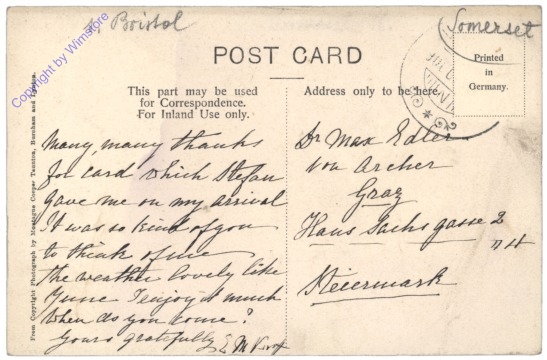 Bristol
Somerset
Copyright by Winstore
POST CARD
Printed
in
Germany.
This part may be used
for Correspondence.
For Inland Use only.
Address only to be here.
Many, many thanks
for card which Stefan
gave me on my arrival
It was so kind of you
to think of me
the weather lovely like
June I enjoy it much
When do you come?
Yours gratefully E M
Dr Max Edler
von Archer
Graz
Hans Sachs gasse 2
Steiermark
From Copyright Photograph by Montague Cooper Taunton, Burnham and